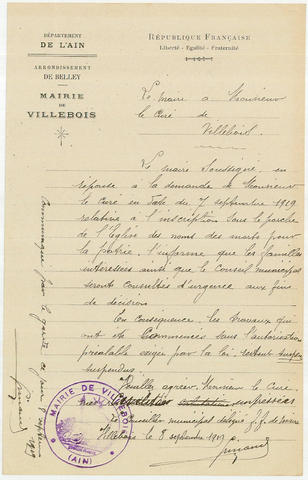 DÉPARTEMENT
DE L'AIN
ARRONDISSEMENT
DE BELLEY
MAIRIE
DE
VILLEBOIS
RÉPUBLIQUE FRANÇAISE
Liberté - Egalité - Fraternité
Le Maire à Monsieur
le Curé de
Villebois.
Le maire soussigné, en
réponse à la demande de Monsieur
le Curé en date du 7 septembre 1919
relative à l'inscription sous le porche
de l'Eglise des noms des morts pour
la patrie, l'informe que les familles
interessées ainsi que le Conseil municipal
seront consultés d'urgence aux fins
de décision
En conséquence, les travaux qui
ont été commencés sans l'autorisation
préalable exigée par la loi, restent
suspendus
Veuillez agréer, Monsieur le Curé
Conseiller municipal délégué
Villebois le 8 septembre 1919
MAIRIE DE VILLEBOIS
(AIN)
Communiqué par le